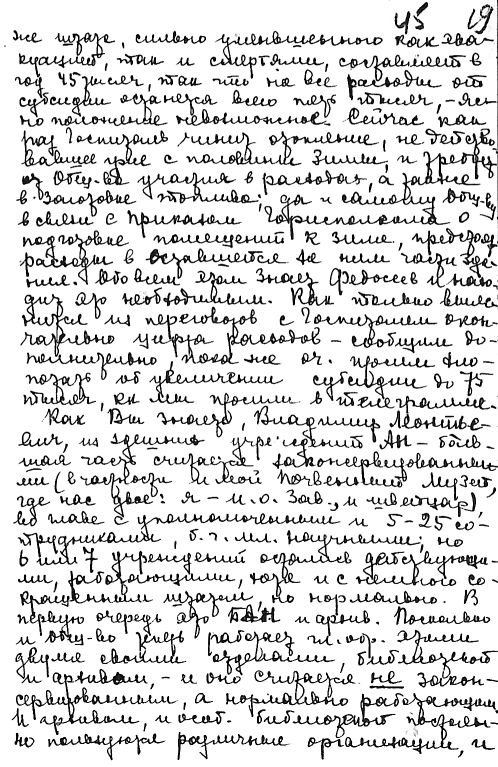 45 19
же штате, сильно уменьшенного как эва-
куацией, так и смертями, составляет в
год 45 тысяч, так что на все расходы от
субсидии останется всего пять тысяч, - яс-
но положение невозможное. Сейчас как
раз Госпиталь чинит отопление, не действо-
вавшее уже с половины зимы, и требует
от Общ-ва участия в расходах, а также
в заготовке топлива; да и самому Общ-ву
в связи с приказом Горисполкома о
подготовке помещений к зиме, предстоят
расходы в оставшейся за ним части зда-
ния. Обо всем этом знает Федосеев и нахо-
дит это необходимым. Как только выяс-
нится из переговоров с Госпиталем окон-
чательно цифра расходов - сообщим до-
полнительно, пока же оч. просим хло-
потать об увеличении субсидии до 75
тысяч, как мы просили в телеграмме.
Как Вы знаете, Владимир Леонтье-
вич, из здешних учреждений АН - боль-
шая часть считается законсервированны-
ми (в частности и мой Почвенный Музей,
где нас двое: я - и.о. Зав., и швейцар)
во главе с уполномоченными и 5-25 со-
трудниками, б.ч. мл. научными; но
6 или 7 учреждений остались действующи-
ми, работающими, хотя и с немного со-
кращенным штатом, но нормально. В
первую очередь это БАН и архив. Поскольку
и Общ-во теперь работает гл. обр. этими
двумя своими отделами, библиотекой
и архивом, - и оно считается не закон-
сервированным, а нормально работающим
И архивом, и особ. библиотекой постоян-
но пользуются различные организации, и